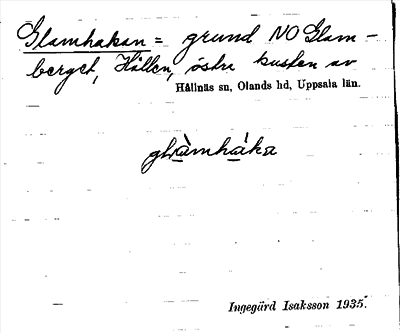 Glamhakan = grund NO Glam-
berget, Hållen, östra kusten av
Hållnäs sn, Olands hd, Uppsala län.
glàmháka
Ingegärd Isaksson 1935.